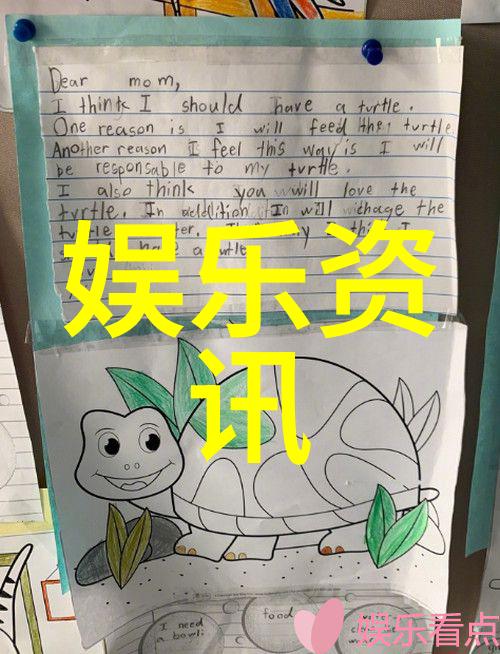 Dear mom,
I think I should have a turtle.
One reason is I will feed the turtle
Another reason I feel this way is I will
be responsable to my turtle.
I also think you will love the
turtle. In addition will the
I
娱乐资讯
I need
a bowl
food
娱乐看点